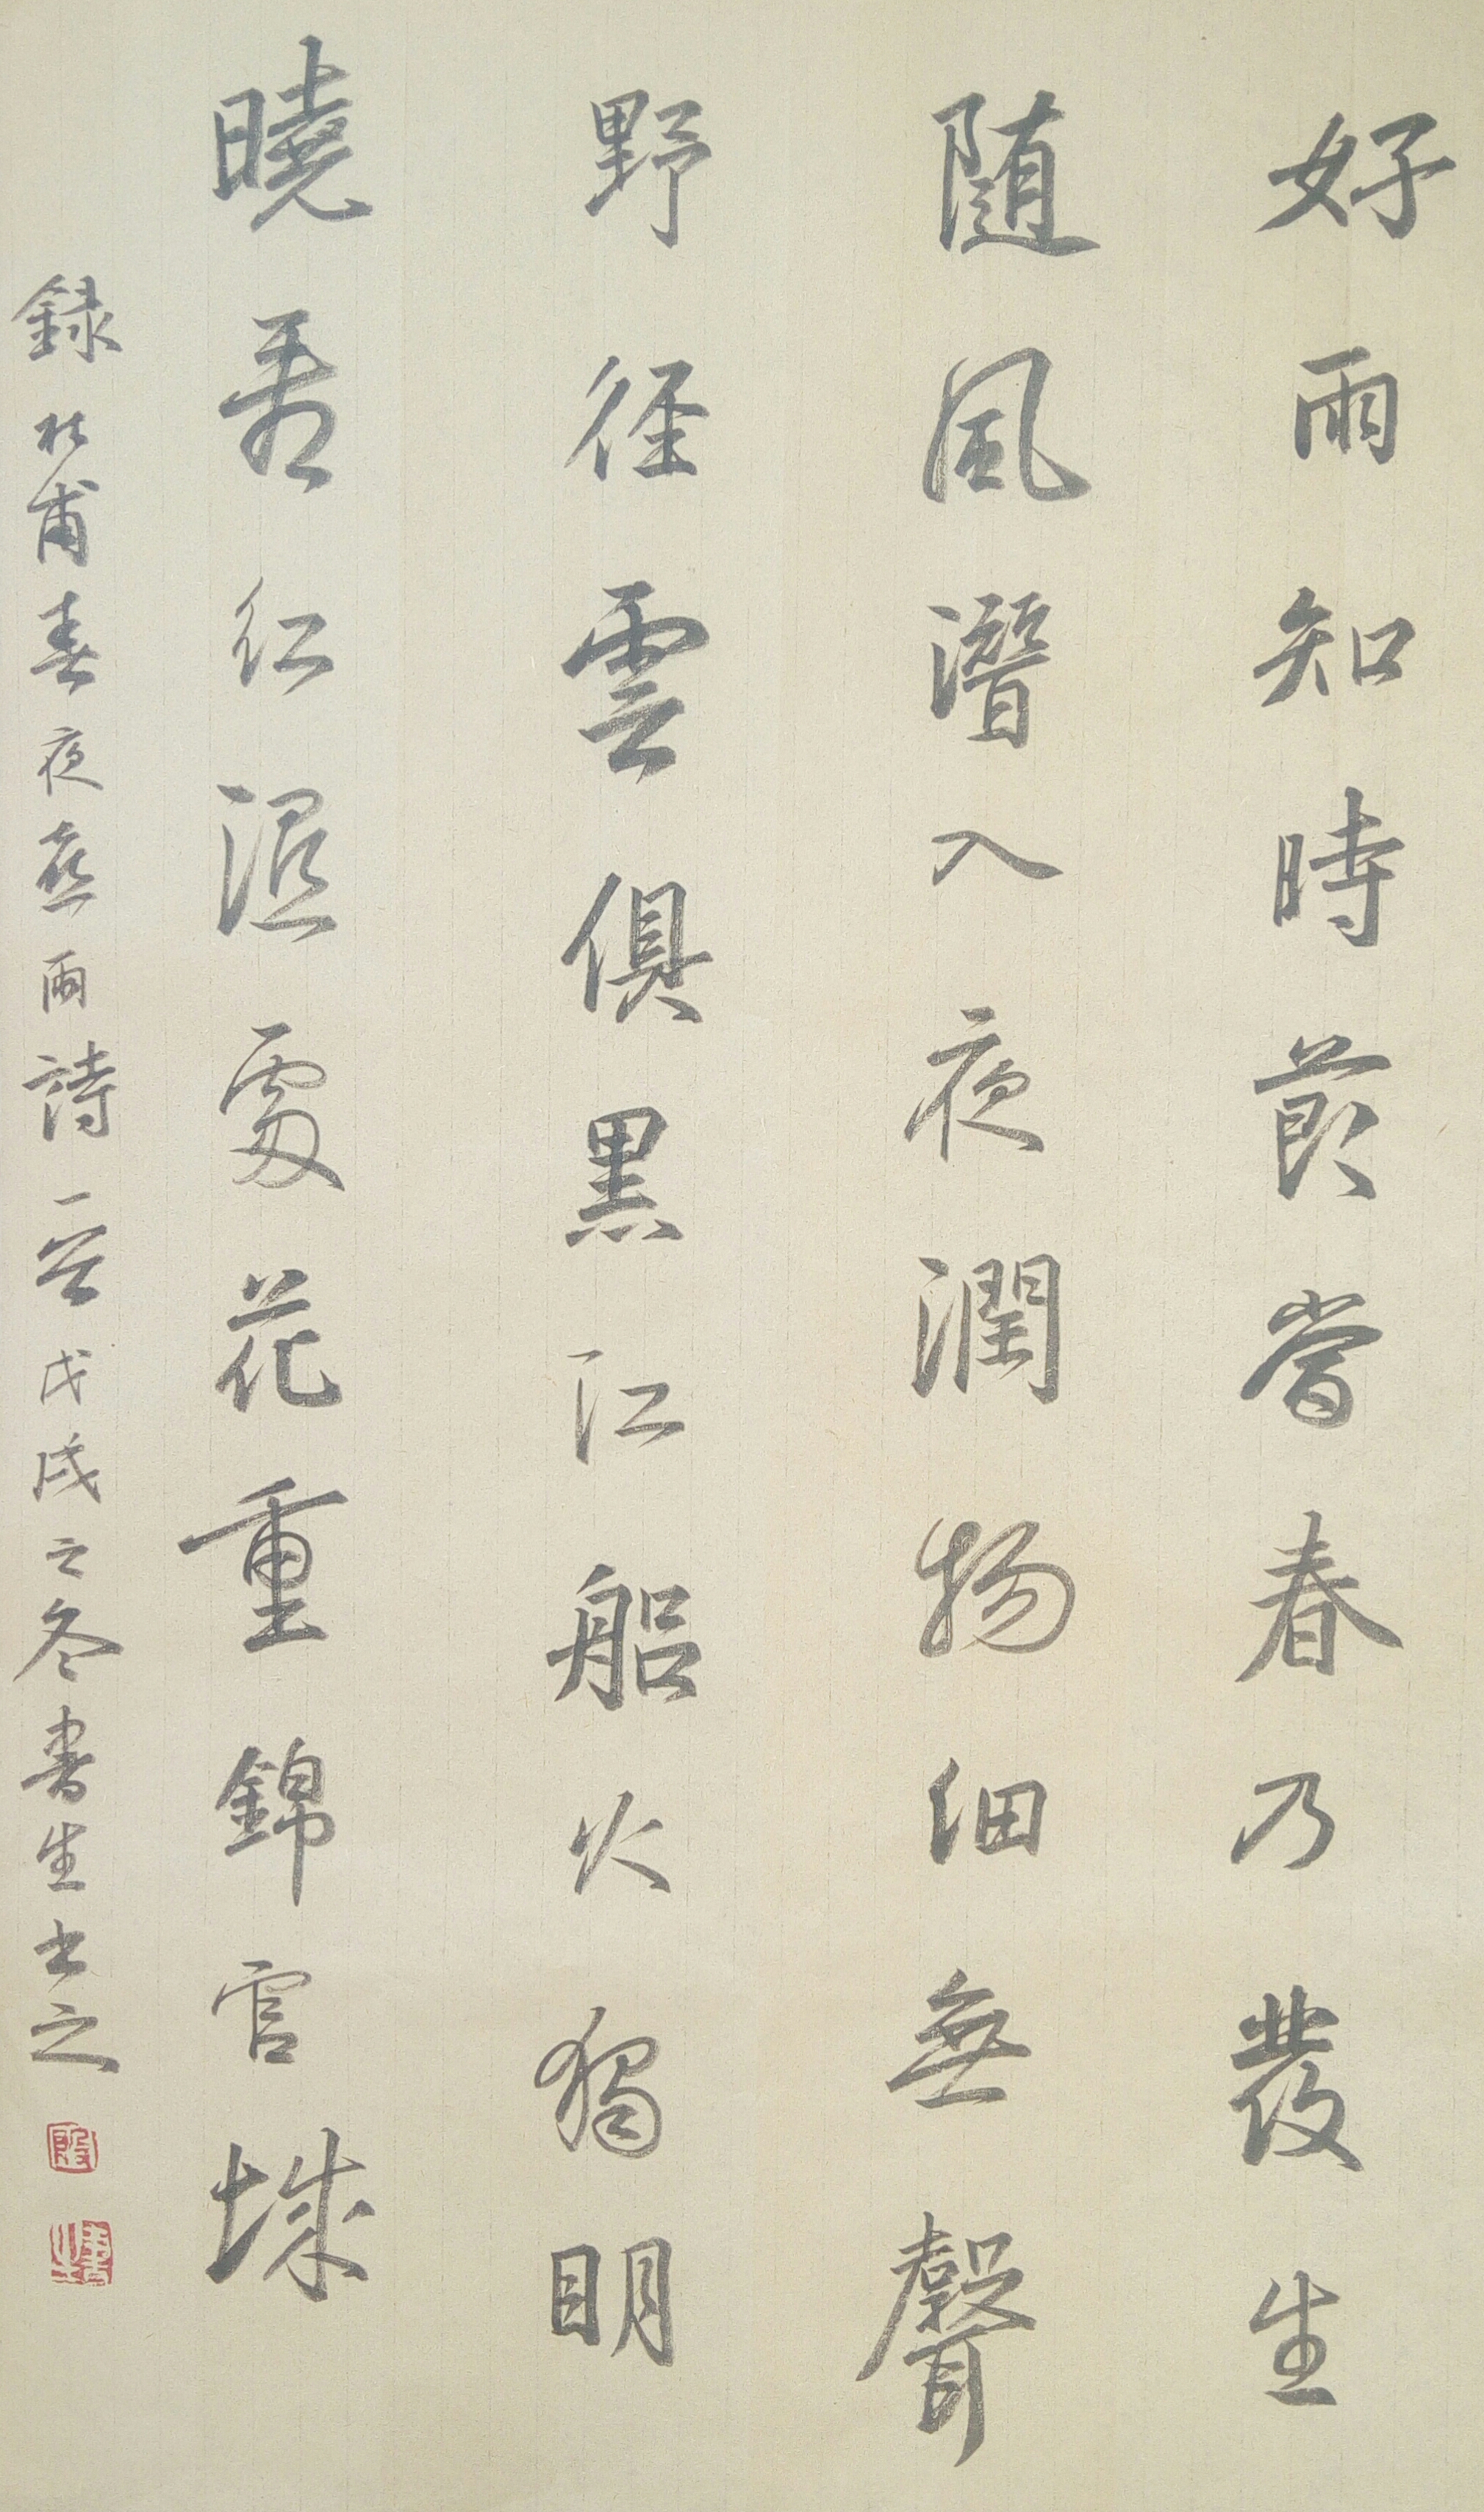 好雨知時節當春乃發生
随風潛入夜潤物細無聲
野徑雲俱黑江船火獨明
曉看紅濕處花重錦官城
錄杜甫春夜喜雨詩一首戊戌之冬書生書之
殷
書生